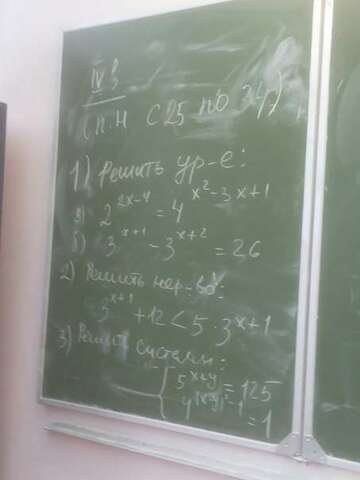 IV 3
(п.н с 25 по 34)
1) Решить ур-е:
а) 2^{2x-4} = 4^{x^2-3x+1}
б) 3^{x+1} - 3^{x+2} = 26
2) Решить нер-во:
3^{x+1} + 12 < 5 · 3^{x+1}
3) Решить системы:
5^{x+y} = 125
4^{(x-y)^2-1} = 1